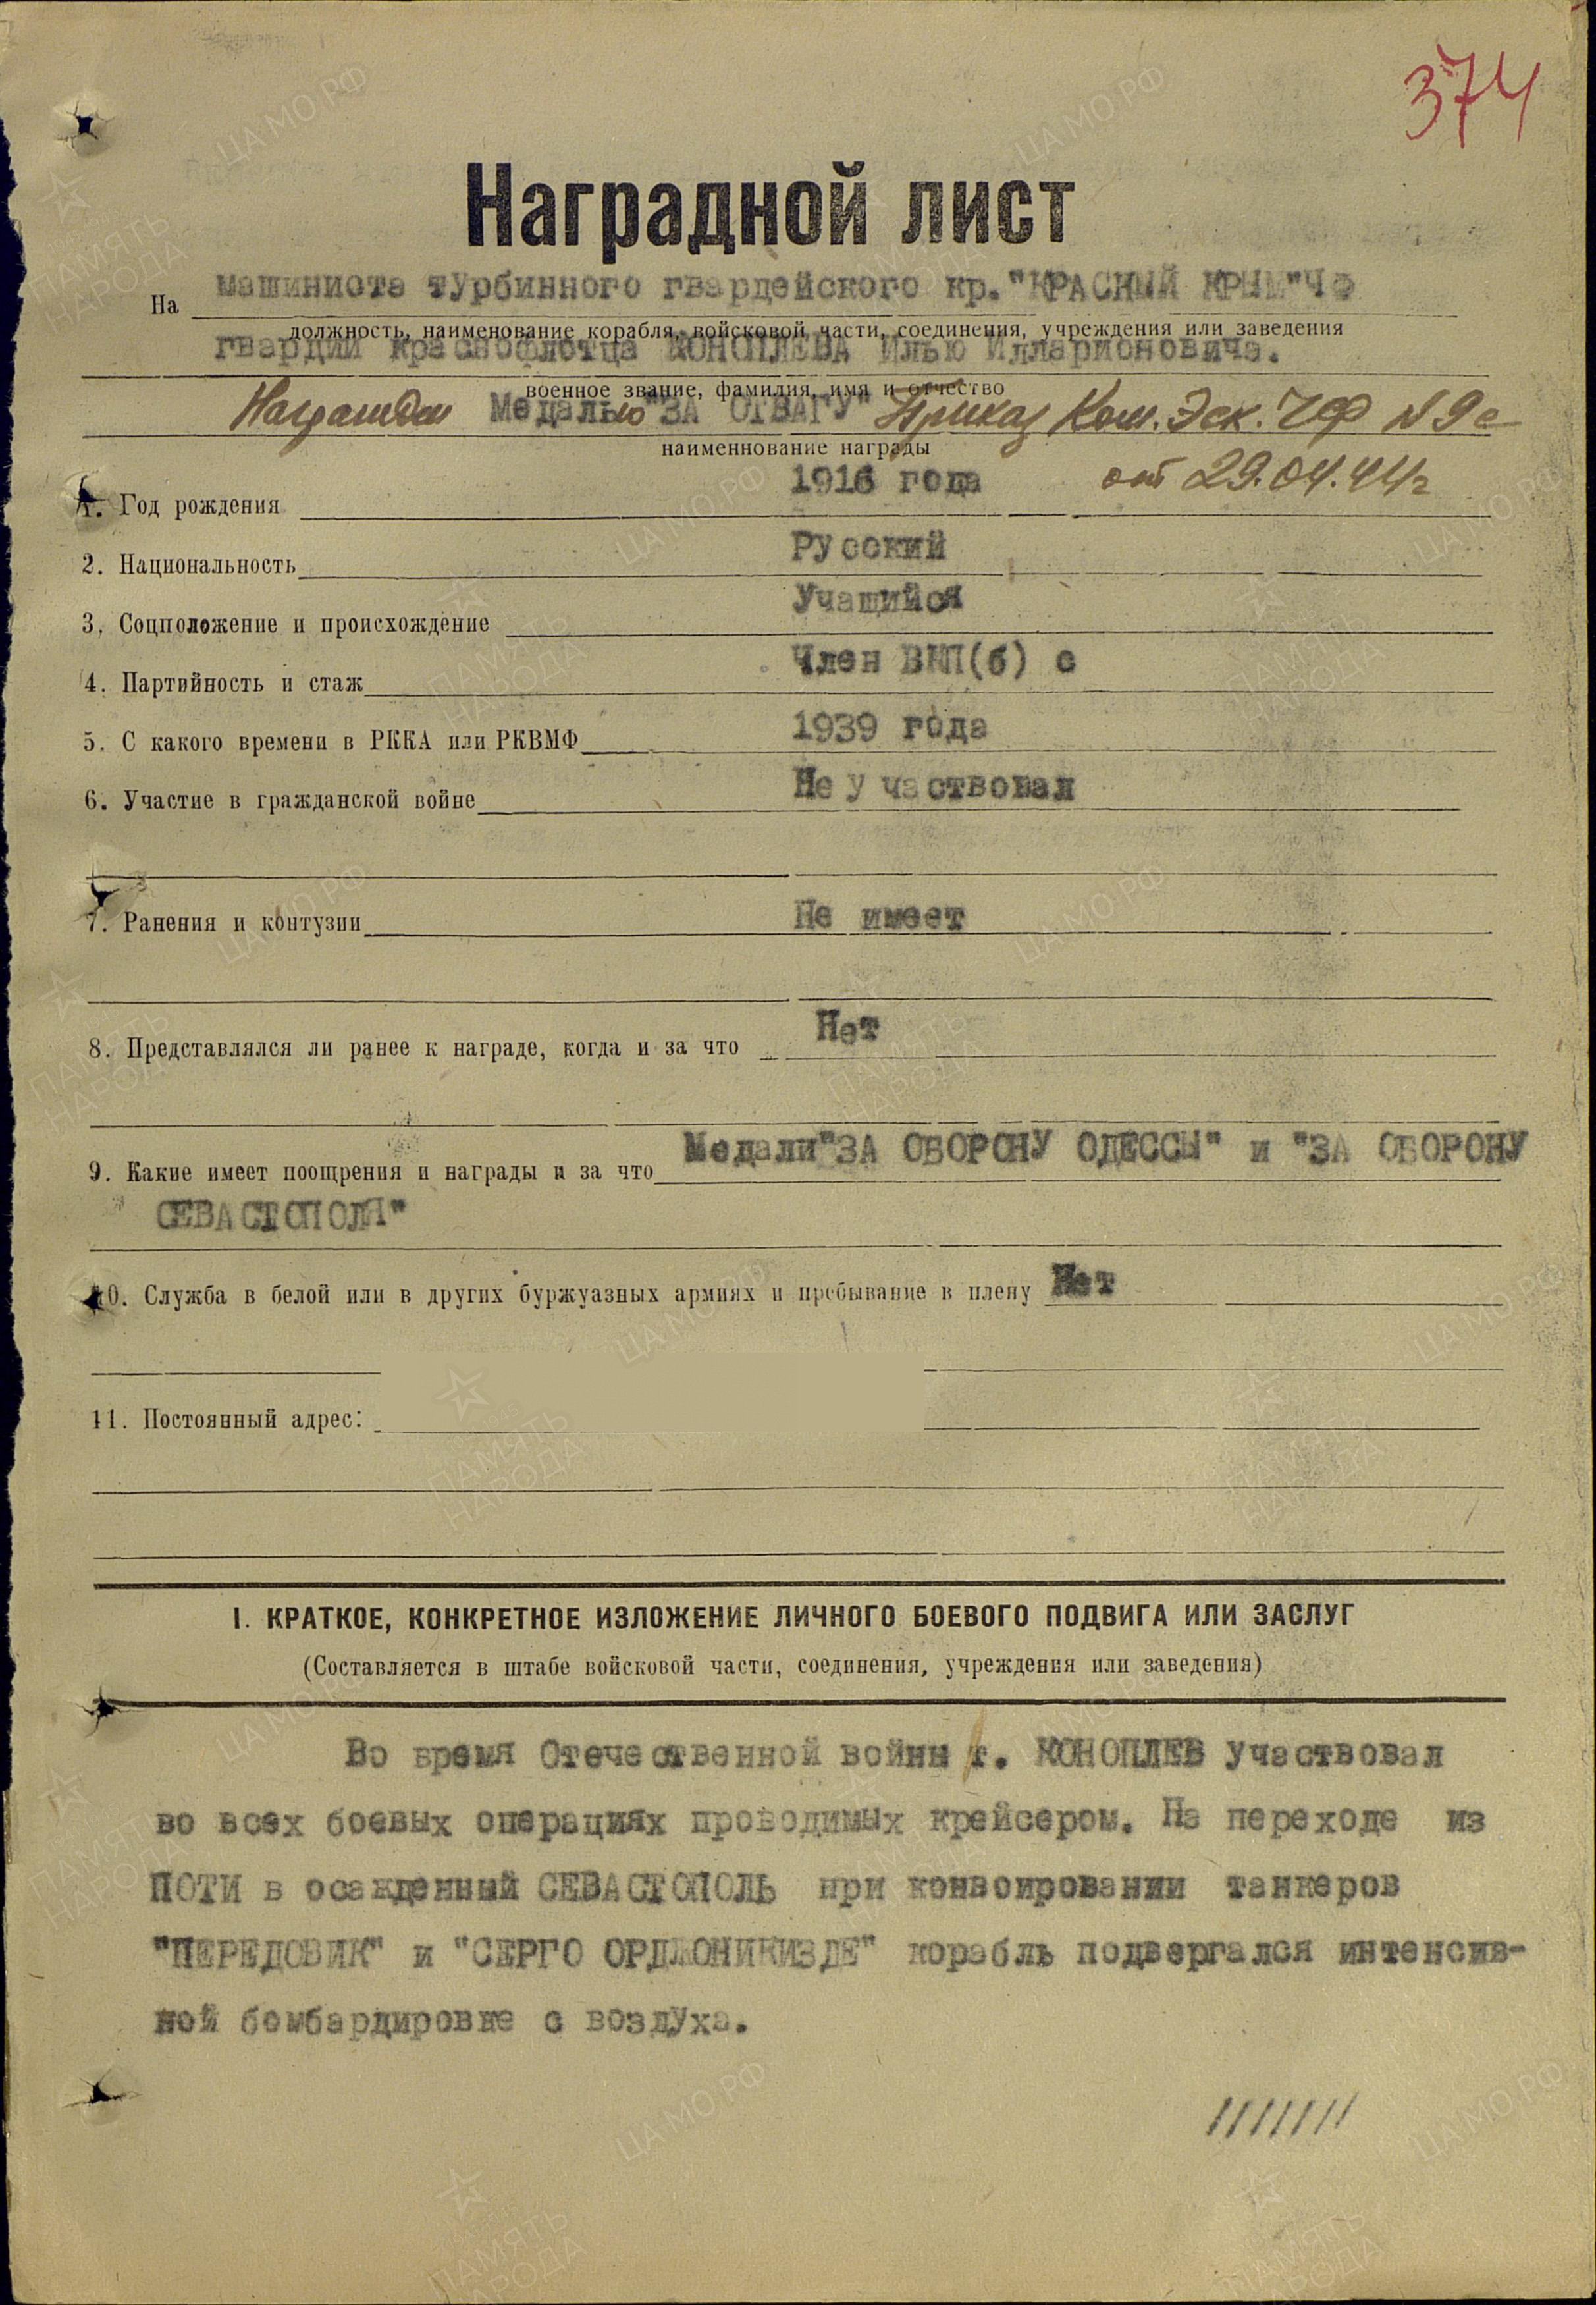 374
Наградной лист
На машиниста турбинного гвардейского кр."КРАСНЫЙ КРЫМ"ЧФ
должность, наименование корабля, войсковой части, соединения, учреждения или заведения
гвардии краснофлотца КОНОПЛЕВА Илью Илларионовича.
военное звание, фамилия, имя и отчество
Награжден Медалью"ЗА ОТВАГУ" Приказ Ком. Эск. ЧФ №9с
наименнование награды
от 29.04.44г
1. Год рождения 1916 года
2. Национальность Русский
3. Соцположение и происхождение Учащийся
4. Партийность и стаж Член ВКП(б) с
5. С какого времени в РККА или РКВМФ 1939 года
6. Участие в гражданской войне Не участвовал
7. Ранения и контузии Не имеет
8. Представлялся ли ранее к награде, когда и за что Нет
9. Какие имеет поощрения и награды и за что Медали"ЗА ОБОРОНУ ОДЕССЫ" и "ЗА ОБОРОНУ
СЕВАСТОПОЛЯ"
10. Служба в белой или в других буржуазных армиях и пребывание в плену Нет
11. Постоянный адрес:
I. КРАТКОЕ, КОНКРЕТНОЕ ИЗЛОЖЕНИЕ ЛИЧНОГО БОЕВОГО ПОДВИГА ИЛИ ЗАСЛУГ
(Составляется в штабе войсковой части, соединения, учреждения или заведения)
Во время Отечественной войны т. КОНОПЛЕВ участвовал
во всех боевых операциях проводимых крейсером. На переходе из
ПОТИ в осажденный СЕВАСТОПОЛЬ при конвоировании танкеров
"ПЕРЕДОВИК" и "СЕРГО ОРДЖОНИКИЗДЕ" корабль подвергался интенсив-
ной бомбардировке с воздуха.
///////